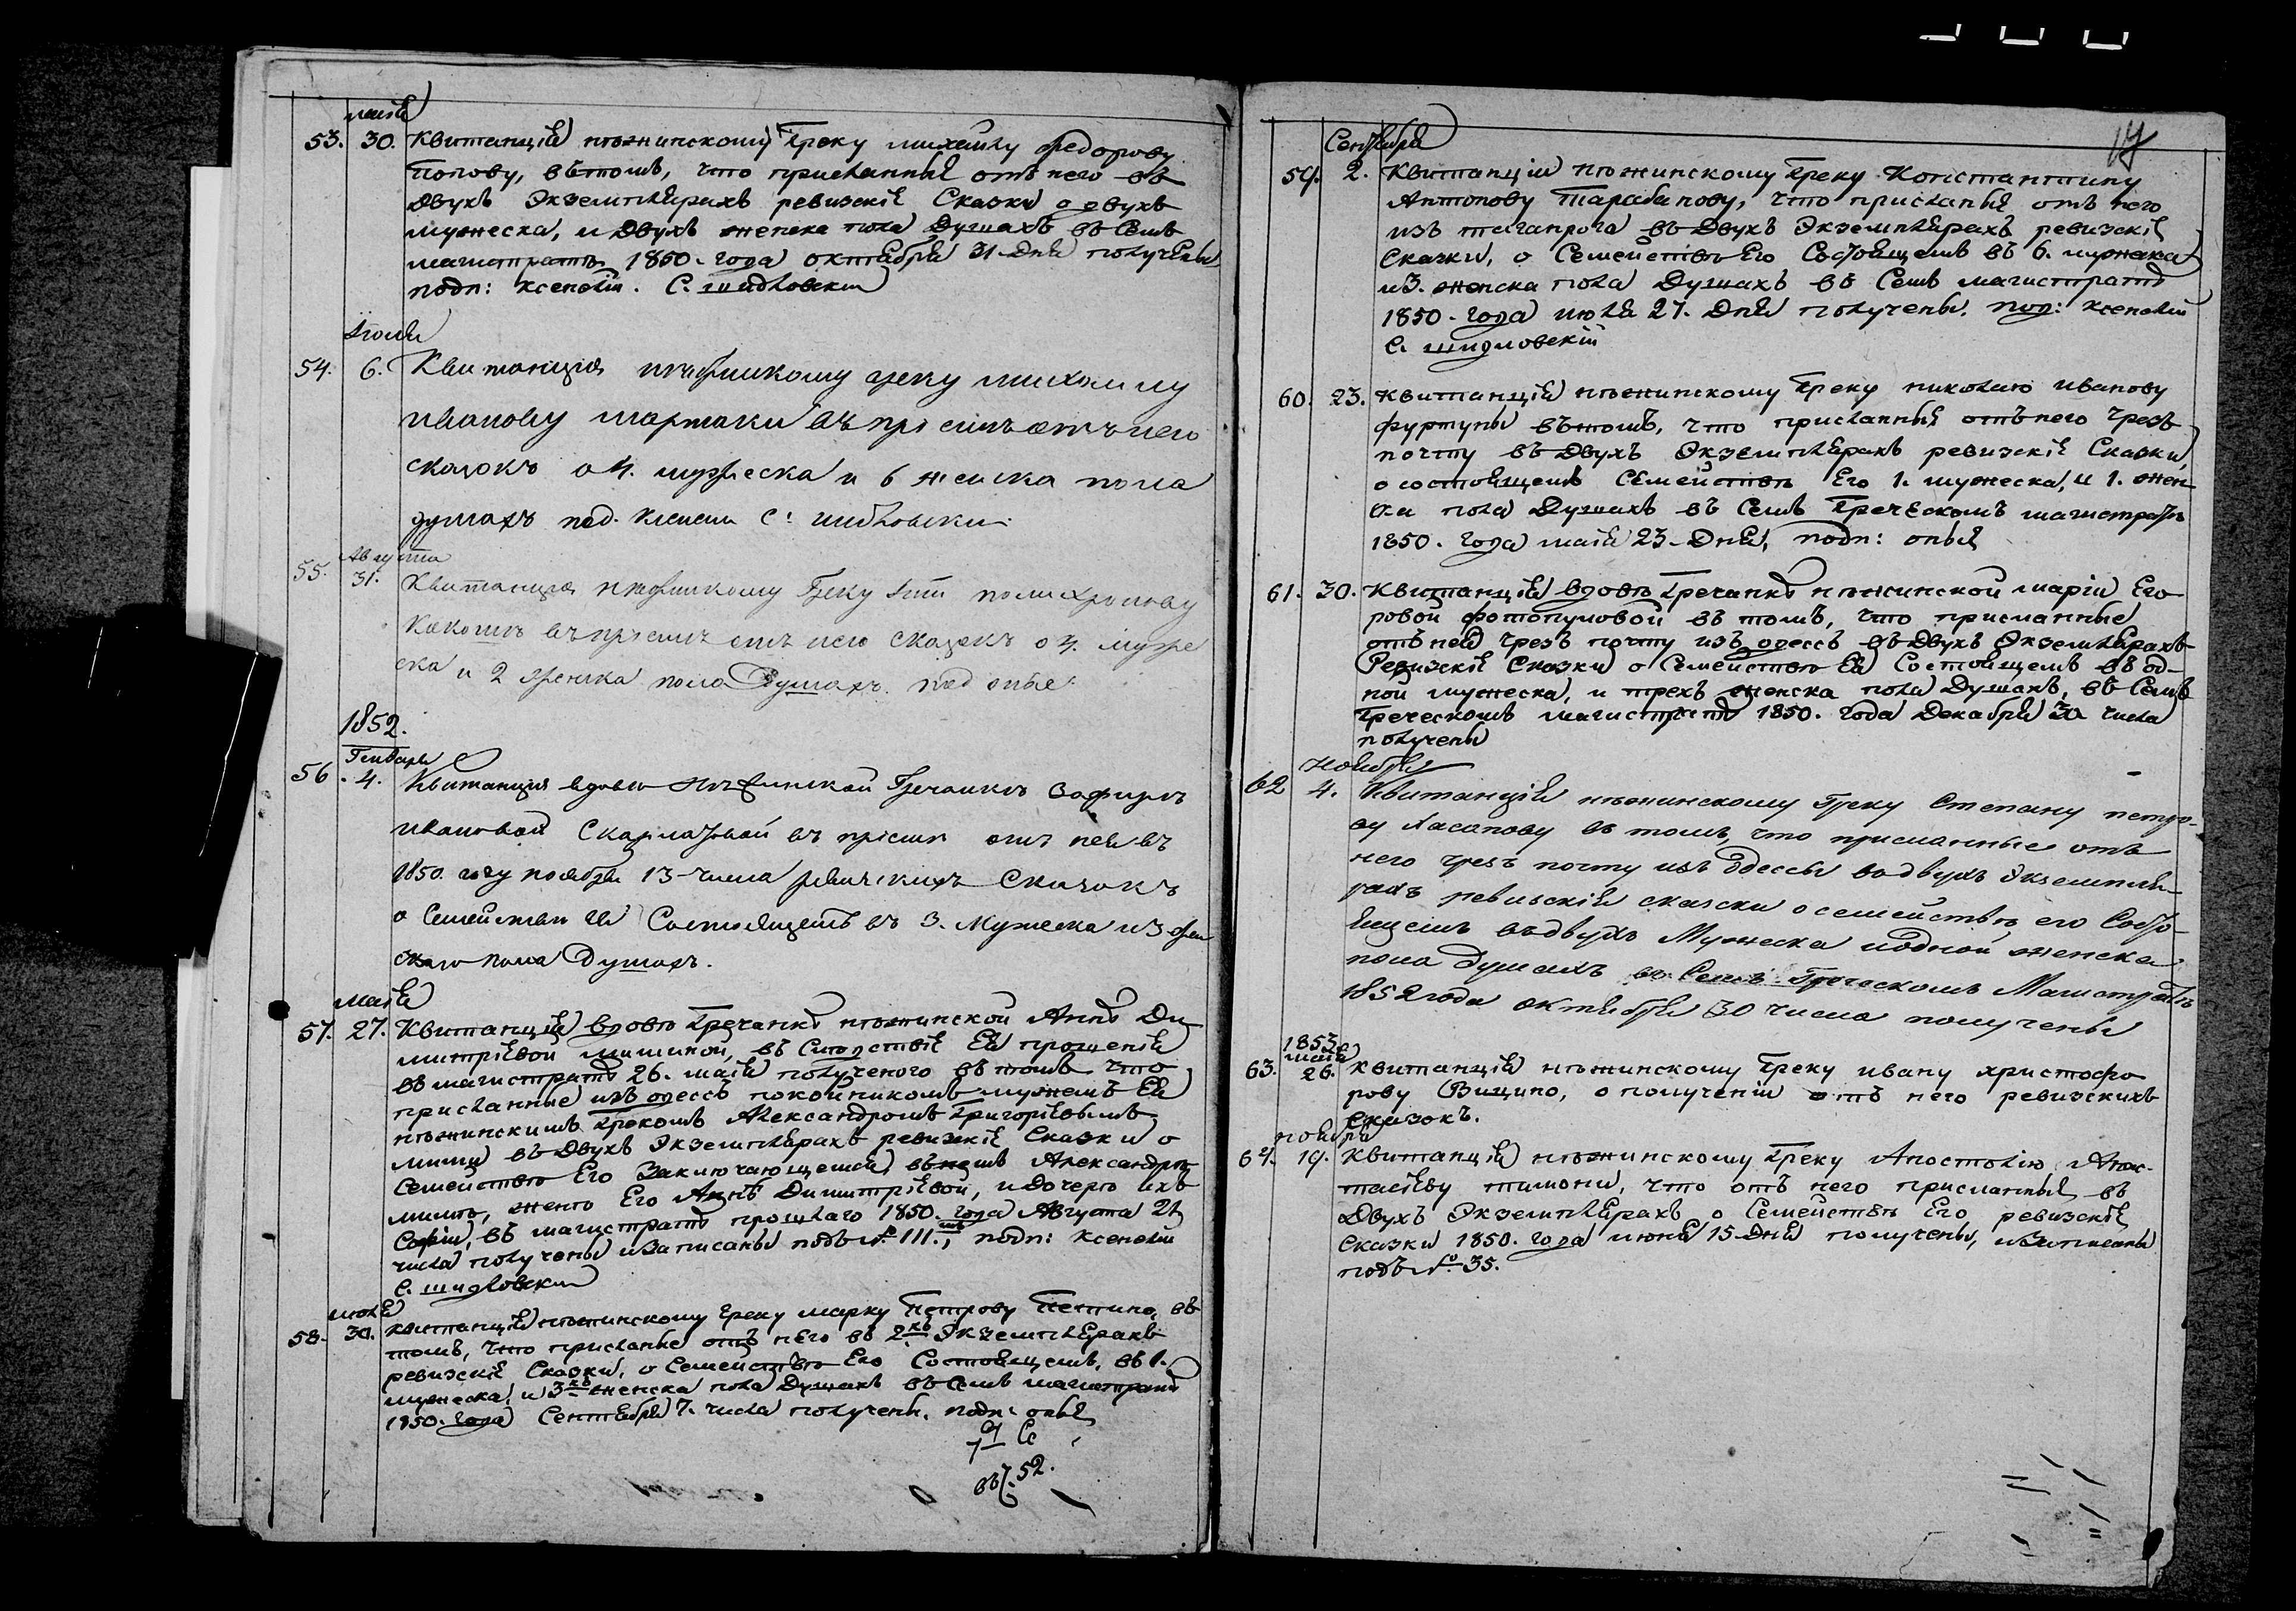 маія
53. 30. Квитанція нѣжинскому Греку михаилу Федорову
Попову, въ томъ, что присланныя отъ него въ
двухъ Экземплярахъ ревизскіе Сказки о двухъ
мужеска, и двухъ женска пола душахъ въ Семъ
магистратѣ 1850. года октября 31 дня получены
подп: Ксенелій. С. шидловскій
Іюля
54. 6. Квитанція нѣжинскому греку михаилу
иванову мартаки въ пріемѣ отъ него
сказокъ о 4. мужеска и 6 женска пола
душахъ под. С: шидловскій
Августа
55. 31. Квитанція нѣжинскому Греку полихронову
въ пріемѣ отъ него сказокъ о 4. муже
ска и 2 женска пола душахъ. под оные
1852.
Генваря
56. 4. Квитанція вдовѣ Нѣжинской Гречанкѣ Зафирѣ
ивановой Скарлатовой въ пріемѣ отъ нея въ
1850. году ноября 13 числа ревизскихъ Сказокъ
о Семействѣ Ея Состоящемъ въ 3. Мужеска и 3 жен
скаго пола Душахъ.
маія
57. 27. Квитанція вдовѣ Гречанкѣ нѣжинской Аннѣ Ди
митріевой мишиной, въ Слѣдствіе Ея прошенія
въ магистратѣ 26. маія полученого въ томъ что
присланные изъ одессъ покойникомъ мужемъ Ея
нѣжинскимъ Грекомъ Александромъ Григоріевымъ
миши въ двухъ Экземплярахъ ревизскіе Сказки о
Семействѣ Его Заключающемся, въ немъ Александрѣ
мишѣ, женѣ Его Аннѣ Димитріевой, и дочерѣ ихъ
Софіи, въ магистратѣ прошлаго 1850. года Августа 21
числа получены и Записаны подъ №. 111., подп: Ксенелій
С. шидловскій
июля
58. 30. Квитанція нѣжинскому Греку марку Петрову въ
томъ, что присланые отъ него въ 2хъ Экземплярахъ
ревизскіе Сказки, о Семействѣ Его Состоящемъ, въ 1.
мужеска, и 3хъ женска пола Душахъ въ Семъ магистратѣ
1850. года Сентября 7. числа получены. подп: оныя
52.
17
Сентября
59. 2. Квитанція нѣжинскому Греку Константину
Антонову Тарабанову, что присланыя отъ него
изъ таганрога въ двухъ Экземплярахъ ревизскіе
Сказки, о Семействѣ Его Состоящемъ въ 6. мужеска
и 3. женска пола Душахъ въ Семъ магистратѣ
1850. года июля 27. Дня получены. под: Ксенелій
С. шидловскій
60. 23. Квитанція нѣжинскому Греку николаю иванову
фуртуны въ томъ, что присланныя отъ него чрезъ
почту въ двухъ Экземплярахъ ревизскіе Сказки,
о состоящемъ Семействѣ Его 1. мужеска, и 1. жен
ска пола Душахъ въ Семъ Греческомъ магистратѣ
1850. года маія 23 Дня, подп: оныя
61. 30. Квитанція вдовѣ Гречанкѣ нѣжинской маріи Его
ровой фотопуловой въ томъ, что присланные
отъ ней чрезъ почту изъ одессъ въ двухъ Экземплярахъ
Ревизскіе Сказки о Семействѣ Ея Состоящемъ въ од-
ной мужеска, и трехъ женска пола Душахъ, въ Семъ
Греческомъ магистратѣ 1850. года Декабря 30 числа
получены
Ноября
62 4. Квитанція нѣжинскому Греку Степану петро-
ву Хасапову въ томъ, что присланные отъ
него чрезъ почту изъ Одессы въ двухъ Экземпля-
рахъ ревизскія сказки о семействѣ его Состо-
ящемъ въ двухъ Мужеска и одной женска
пола душахъ въ Семъ Греческомъ Магистратѣ
1852 года октября 30 числа получены
1853.
маія
63. 26. Квитанція нѣжинскому Греку ивану христофо
рову Вицино, о полученіи отъ него ревизскихъ
сказокъ.
ноября
64. 19. Квитанція нѣжинскому Греку Апостолію Анас-
тасіеву тимони, что отъ него присланныя въ
двухъ Экземплярахъ о Семействѣ Его ревизскіе
Сказки 1850. года июня 15 Дня получены, и Записаны
подъ №. 35.